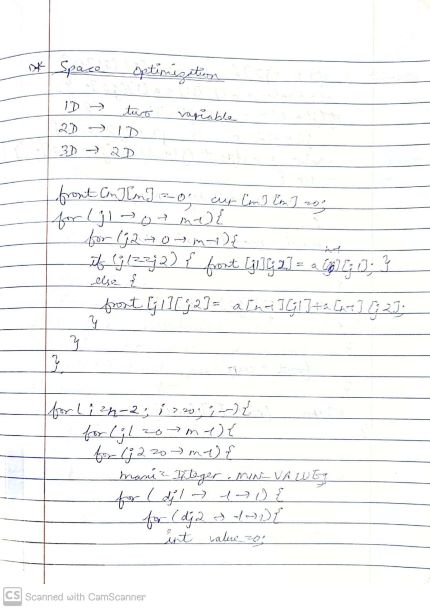 * Space optimization
1D → two variable
2D → 1D
3D → 2D
front [m][m] = 0; cur [m][m] = 0;
for (j1 → 0 → m-1) {
for (j2 → 0 → m-1) {
if (j1 == j2) { front [j1][j2] = a [n-1][j1]; }
else {
front [j1][j2] = a[n-1][j1] + a[n-1][j2];
}
}
}
for (i = n-2; i >= 0; i--) {
for (j1 = 0 → m-1) {
for (j2 = 0 → m-1) {
maxi = Integer.MIN_VALUE;
for (dj1 → -1 → 1) {
for (dj2 → -1 → 1) {
int value = 0;
CS Scanned with CamScanner